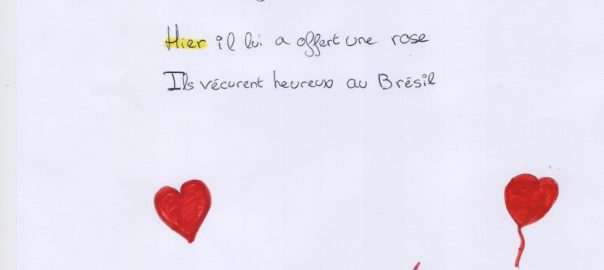 Hier il lui a offert une rose
Ils vécurent heureux au Brésil